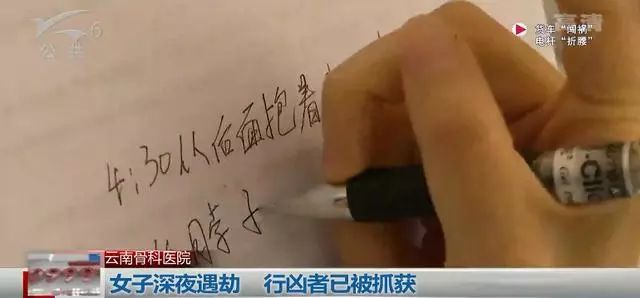 公共6
高清
货车“闯祸”
电杆“折腰”
4:30从后面抱着
脖子
云南骨科医院
女子深夜遇劫 行凶者已被抓获